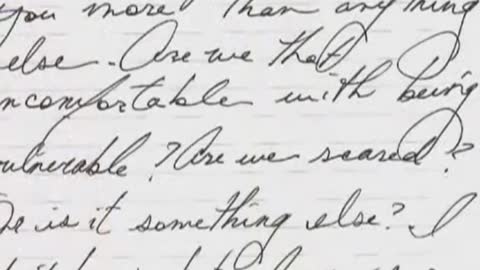 you more than anything
else. Are we that
uncomfortable with being
vulnerable? Are we scared?
Or is it something else? I